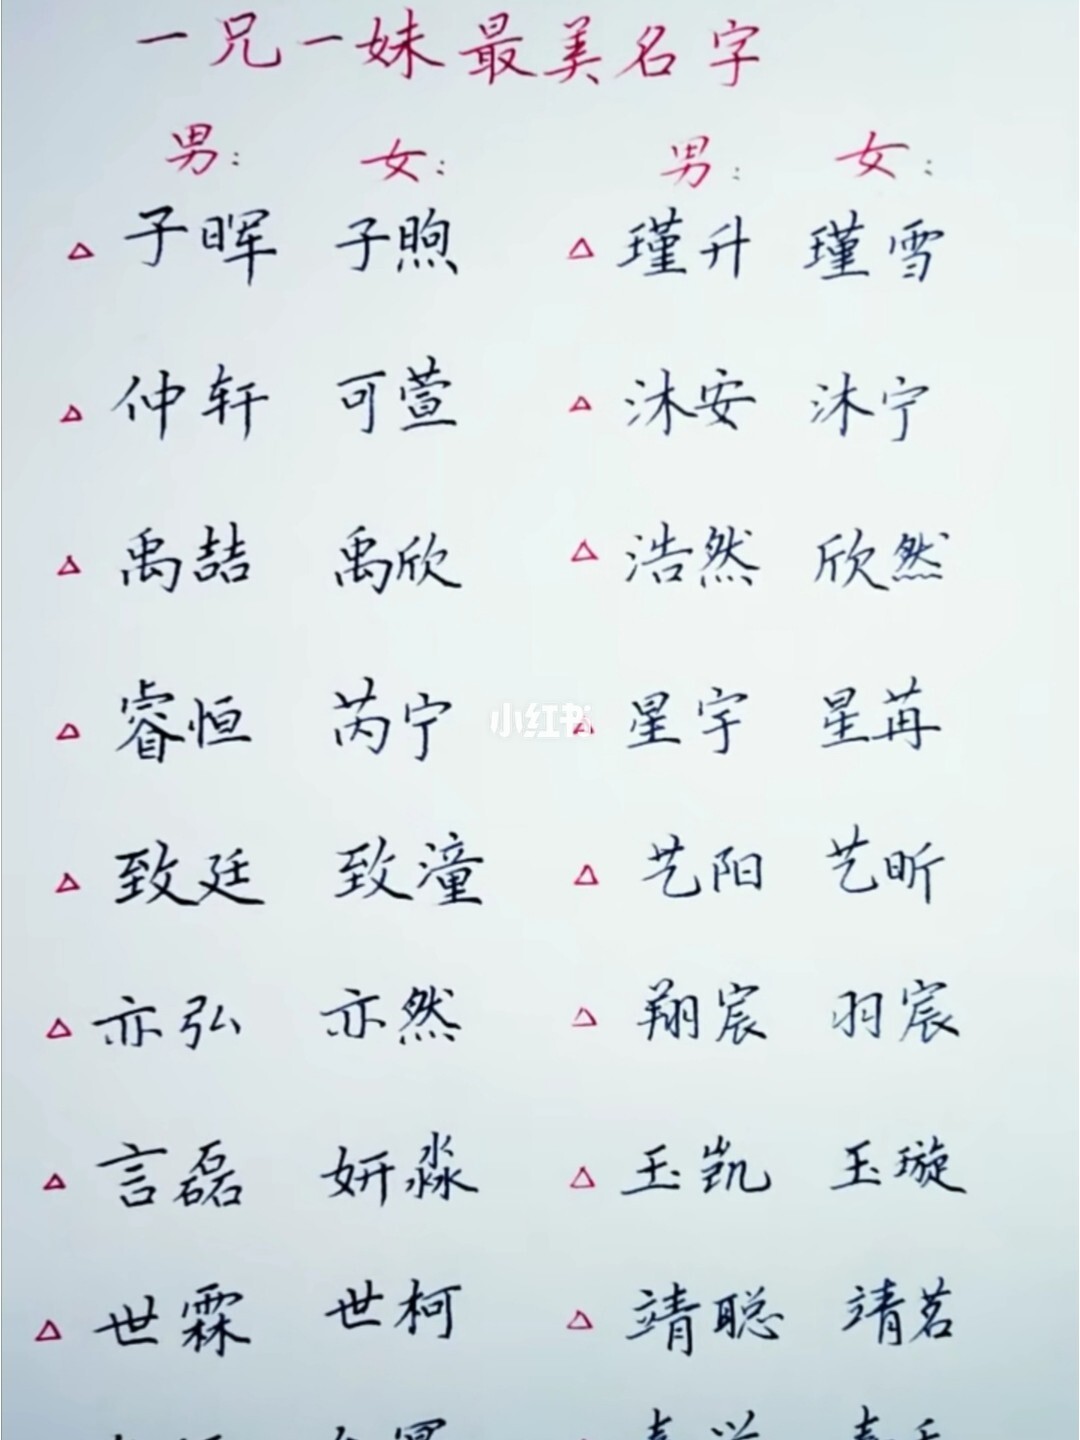 一兄一妹最美名字
男: 女: 男: 女:
△ 子晖 子煦 △ 瑾升 瑾雪
△ 仲轩 可萱 △ 沐安 沐宁
△ 禹喆 禹欣 △ 浩然 欣然
△ 睿恒 芮宁 △ 星宇 星苒
小红书
△ 致廷 致潼 △ 艺阳 艺昕
△ 亦弘 亦然 △ 翔宸 羽宸
△ 言磊 妍淼 △ 玉凯 玉璇
△ 世霖 世柯 △ 靖聪 靖茗